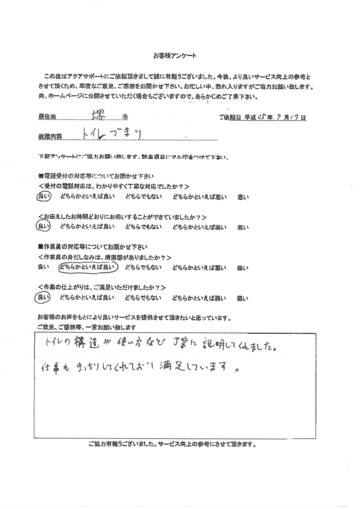 お客様アンケート
この度はアクアサポートにご依頼頂きまして誠に有難うございました。今後、より良いサービス向上の参考と
させて頂くため、率直なご意見、ご感想をお聞かせ下さい。お忙しい中、恐れ入りますがご協力お願い致します。
尚、ホームページに公開させていただく場合もございますので、あらかじめご了承下さい。
居住地 堺 市 ご依頼日 平成 25年 7月 17日
故障内容 トイレつまり
下記アンケートにご協力お願い致します。該当項目にマル印をつけて下さい。
■電話受付の対応等についてお聞かせ下い
＜受付の電話対応は、わかりやすく丁寧な対応でしたか？＞
良い どちらかといえば良い どちらでもない どちらかといえば悪い 悪い
＜お伝えしたお時間どおりにお伺いすることができていましたか？＞
良い どちらかといえば良い どちらでもない どちらかといえば悪い 悪い
■作業員の対応等についてお聞かせ下さい
＜作業員の身だしなみは、清潔感がありましたか？＞
良い どちらかといえば良い どちらでもない どちらかといえば悪い 悪い
＜作業の仕上がりは、ご満足いただけましたか？＞
良い どちらかといえば良い どちらでもない どちらかといえば悪い 悪い
お客様のお声をもとにより良いサービスを提供させて頂きたいと思っています。
ご意見、ご感想等、一言お願い致します
トイレの構造や使い方など丁寧に説明してくれました。
仕事もきっちりしてくれており満足しています。
ご協力有難うございました。サービス向上の参考にさせて頂きます。